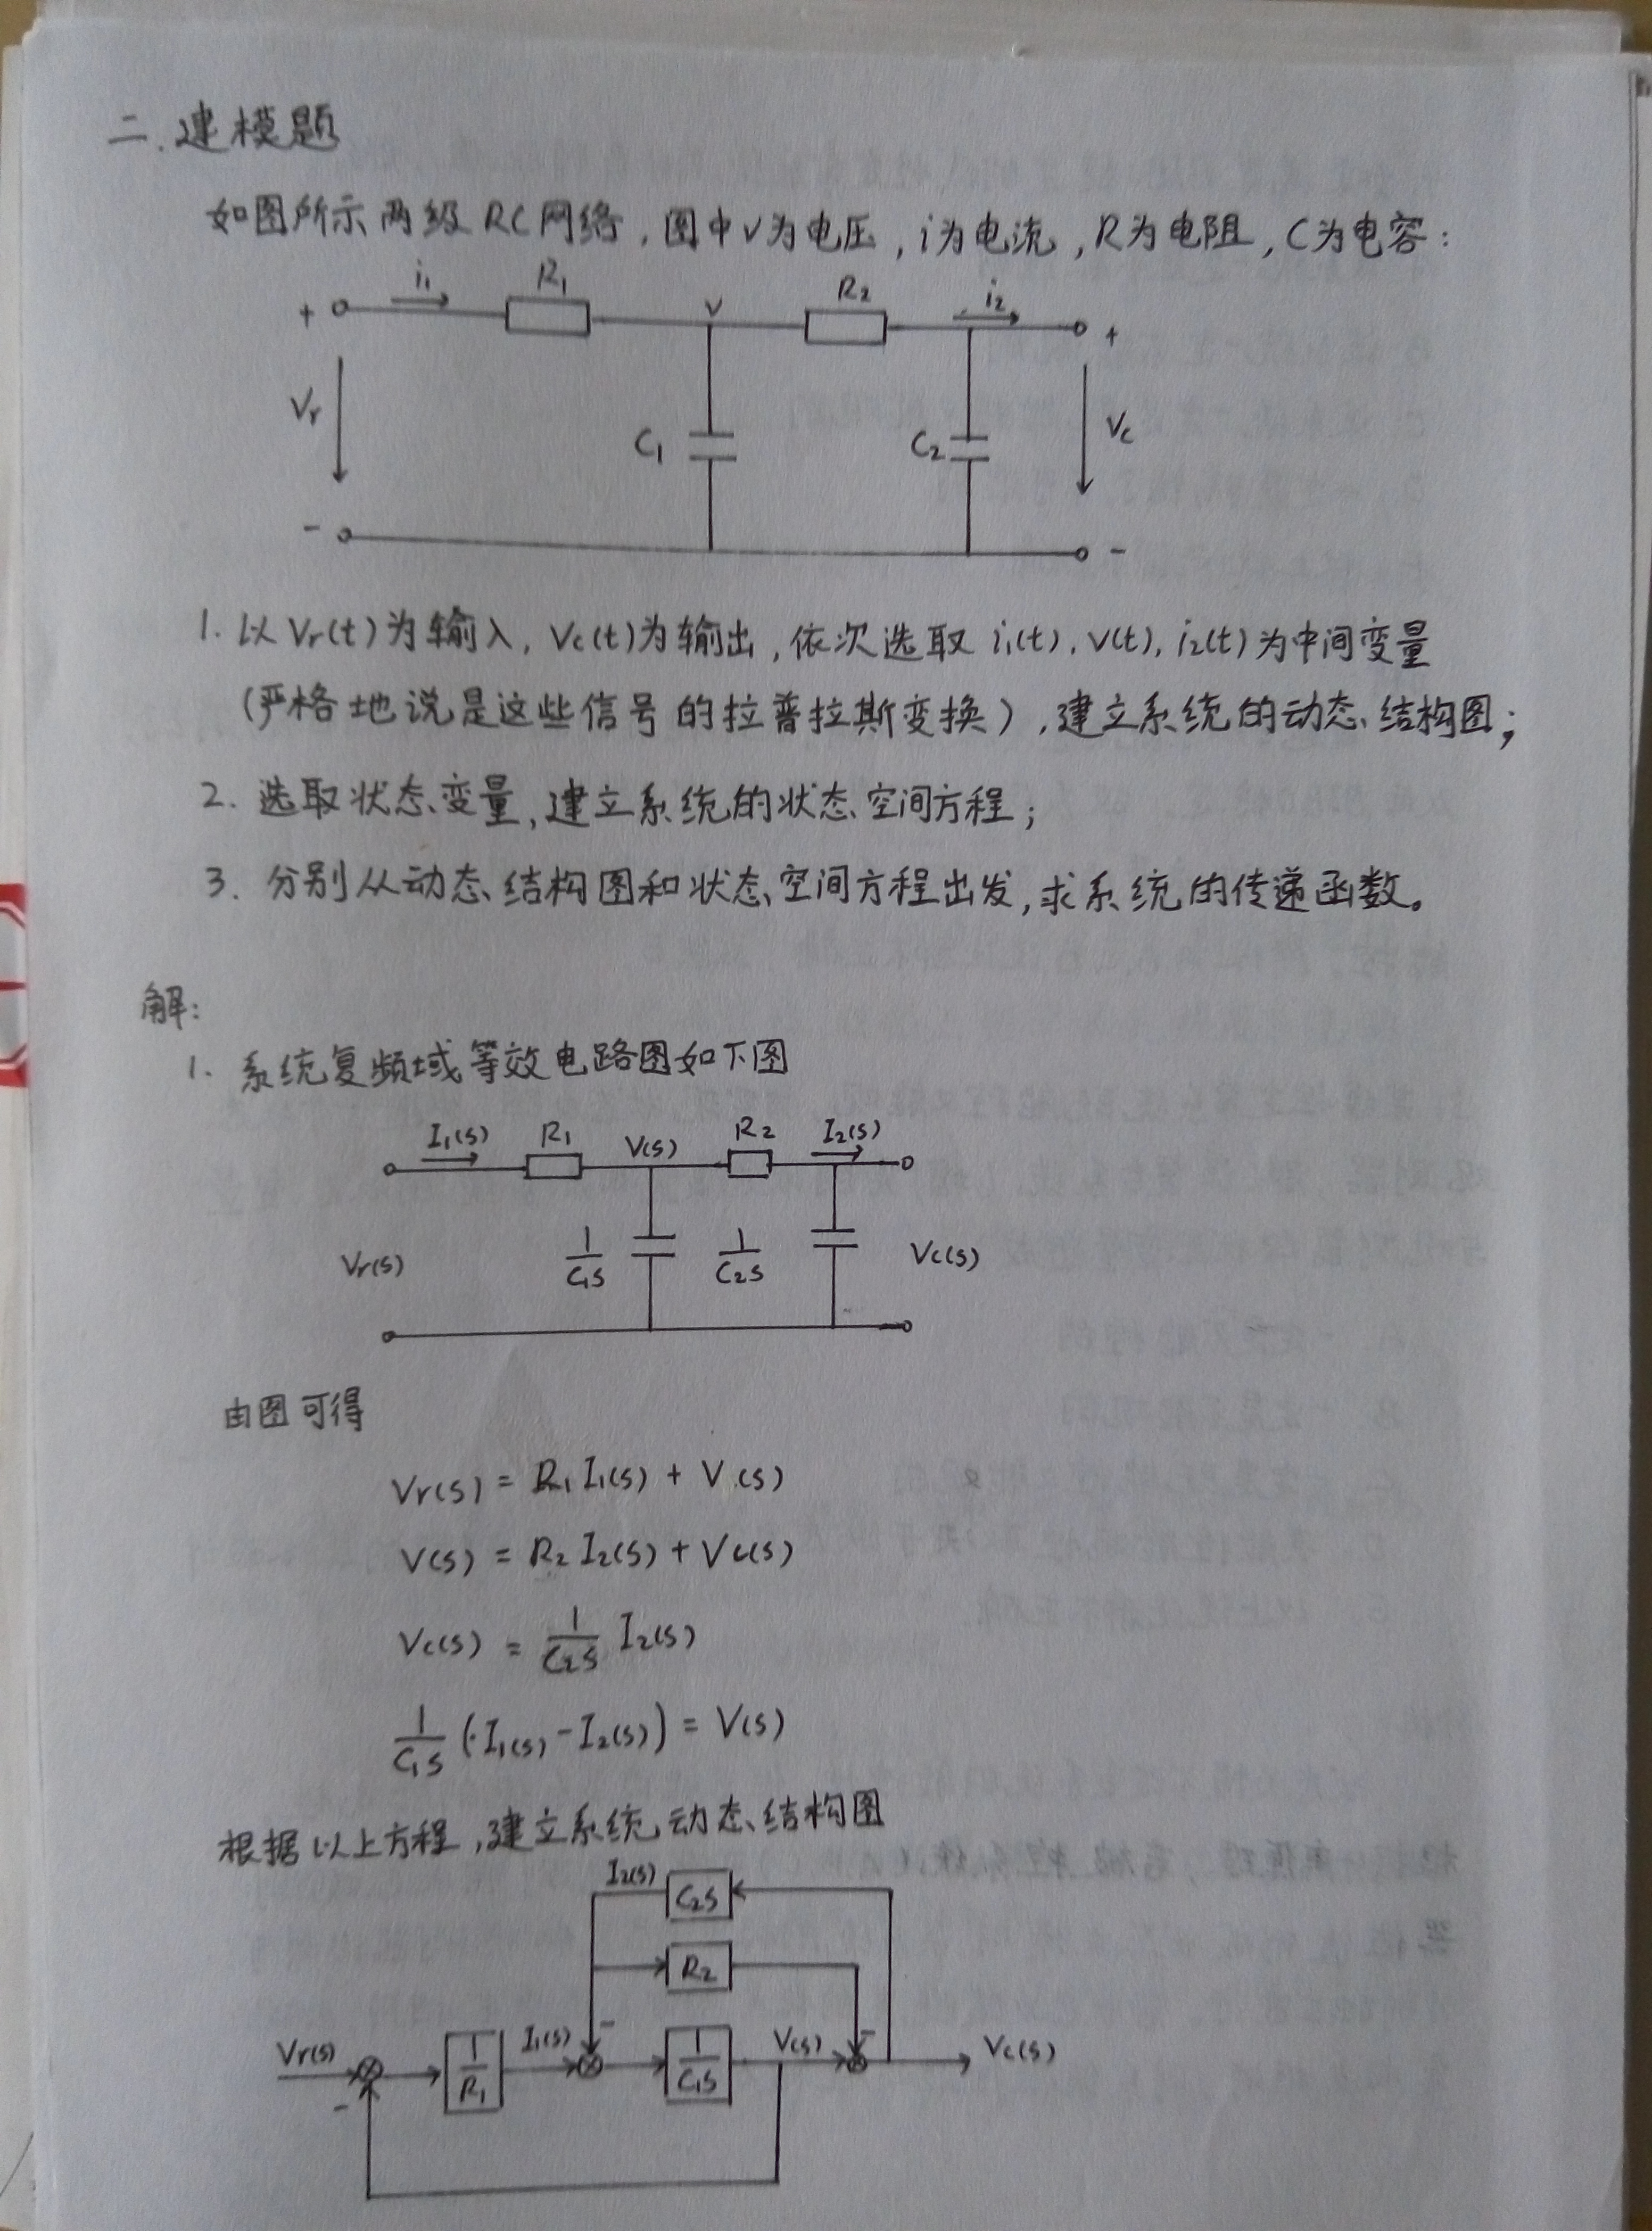 二.建模题
如图所示两级RC网络,图中v为电压,i为电流,R为电阻,C为电容:
i₁ R₁ v R₂ i₂
+ +
Vr C₁ C₂ Vc
- -
1. 以Vr(t)为输入,Vc(t)为输出,依次选取i₁(t),V(t),i₂(t)为中间变量
(严格地说是这些信号的拉普拉斯变换),建立系统的动态结构图;
2. 选取状态变量,建立系统的状态空间方程;
3. 分别从动态结构图和状态空间方程出发,求系统的传递函数。
解:
1. 系统复频域等效电路图如下图
I₁(s) R₁ V(s) R₂ I₂(s)
Vr(s) 1/C₁s 1/C₂s Vc(s)
由图可得
Vr(s) = R₁I₁(s) + V(s)
V(s) = R₂I₂(s) + Vc(s)
Vc(s) = 1/C₂s I₂(s)
1/C₁s (I₁(s) - I₂(s)) = V(s)
根据以上方程,建立系统动态结构图
I₂(s) C₂s
R₂
Vr(s) 1/R₁ I₁(s) - 1/C₁s V(s) - Vc(s)
-